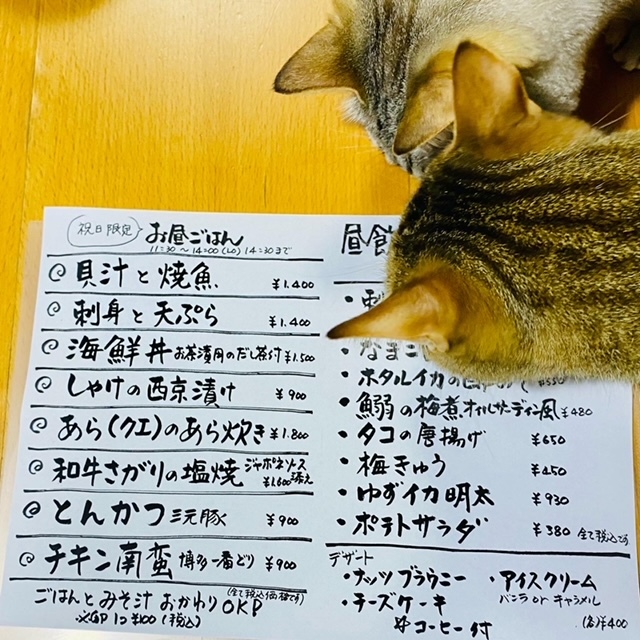 祝日限定 お昼ごはん
11:30〜14:00(LO) 14:30まで
貝汁と焼魚 ¥1.400
刺身と天ぷら ¥1.400
海鮮丼 お茶漬用のだし茶付 ¥1.500
しゃけの西京漬け ¥900
あら(クエ)のあら炊き ¥1.800
和牛さがりの塩焼 ジャポネソース添え ¥1.600
とんかつ 三元豚 ¥900
チキン南蛮 博多一番どり ¥900
(全て税込価格です)
ごはんとみそ汁 おかわりOK!!
1つ¥100(税込)
昼飲
・刺
・なまこ
・ホタルイカの ¥550
・鰯の梅煮オイルサーディン風 ¥480
・タコの唐揚げ ¥650
・梅きゅう ¥450
・ゆずイカ明太 ¥930
・ポテトサラダ ¥380 全て税込です
デザート
・ナッツブラウニー ・アイスクリーム
バニラorキャラメル
・チーズケーキ
コーヒー付 (各)¥400